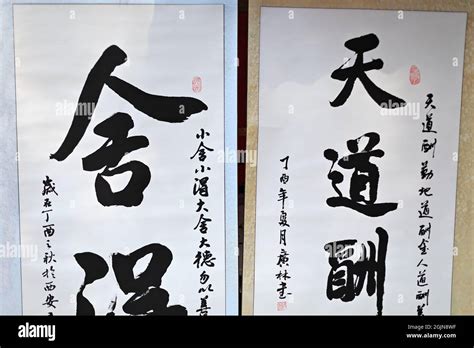 舍得
小舍小得大舍大得
岁在丁酉之秋於西安
天道酬
天道酬勤地道酬善人道酬
丁酉年夏月广林書
alamy
Image ID: 2GJN8WF
www.alamy.com